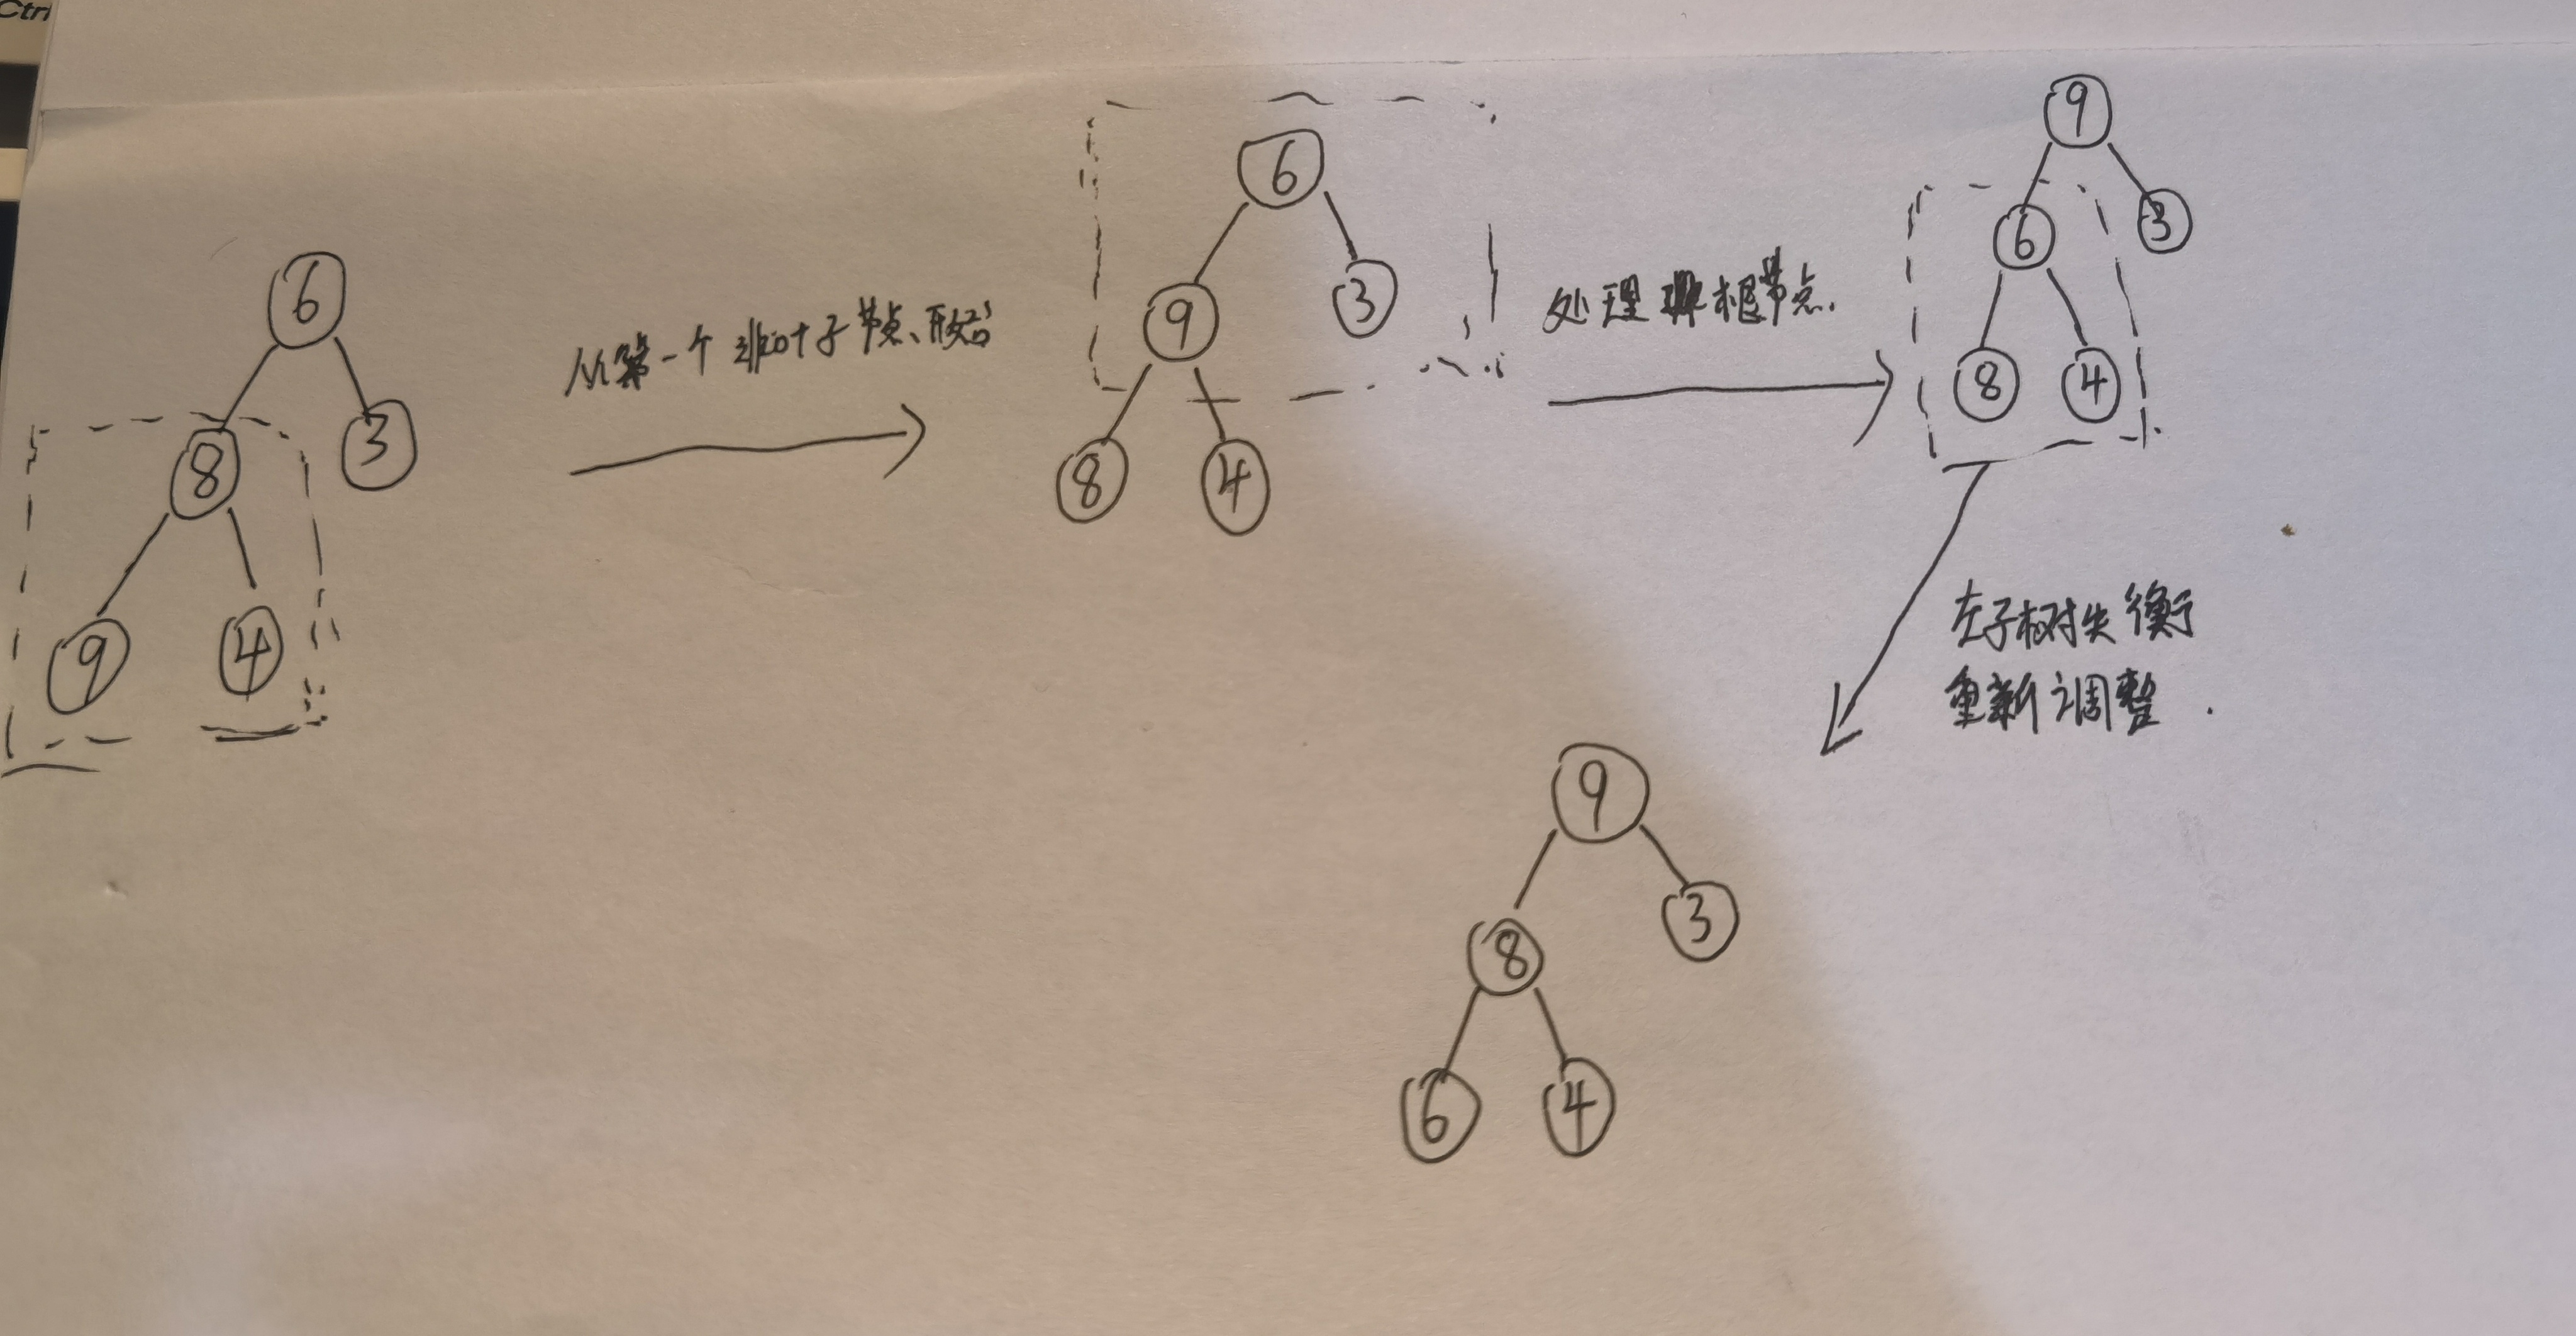 Ctrl
6
8
3
9
4
从第一个非叶子节点开始
6
9
3
8
4
处理根节点.
9
6
3
8
4
左子树失衡
重新调整.
9
8
3
6
4